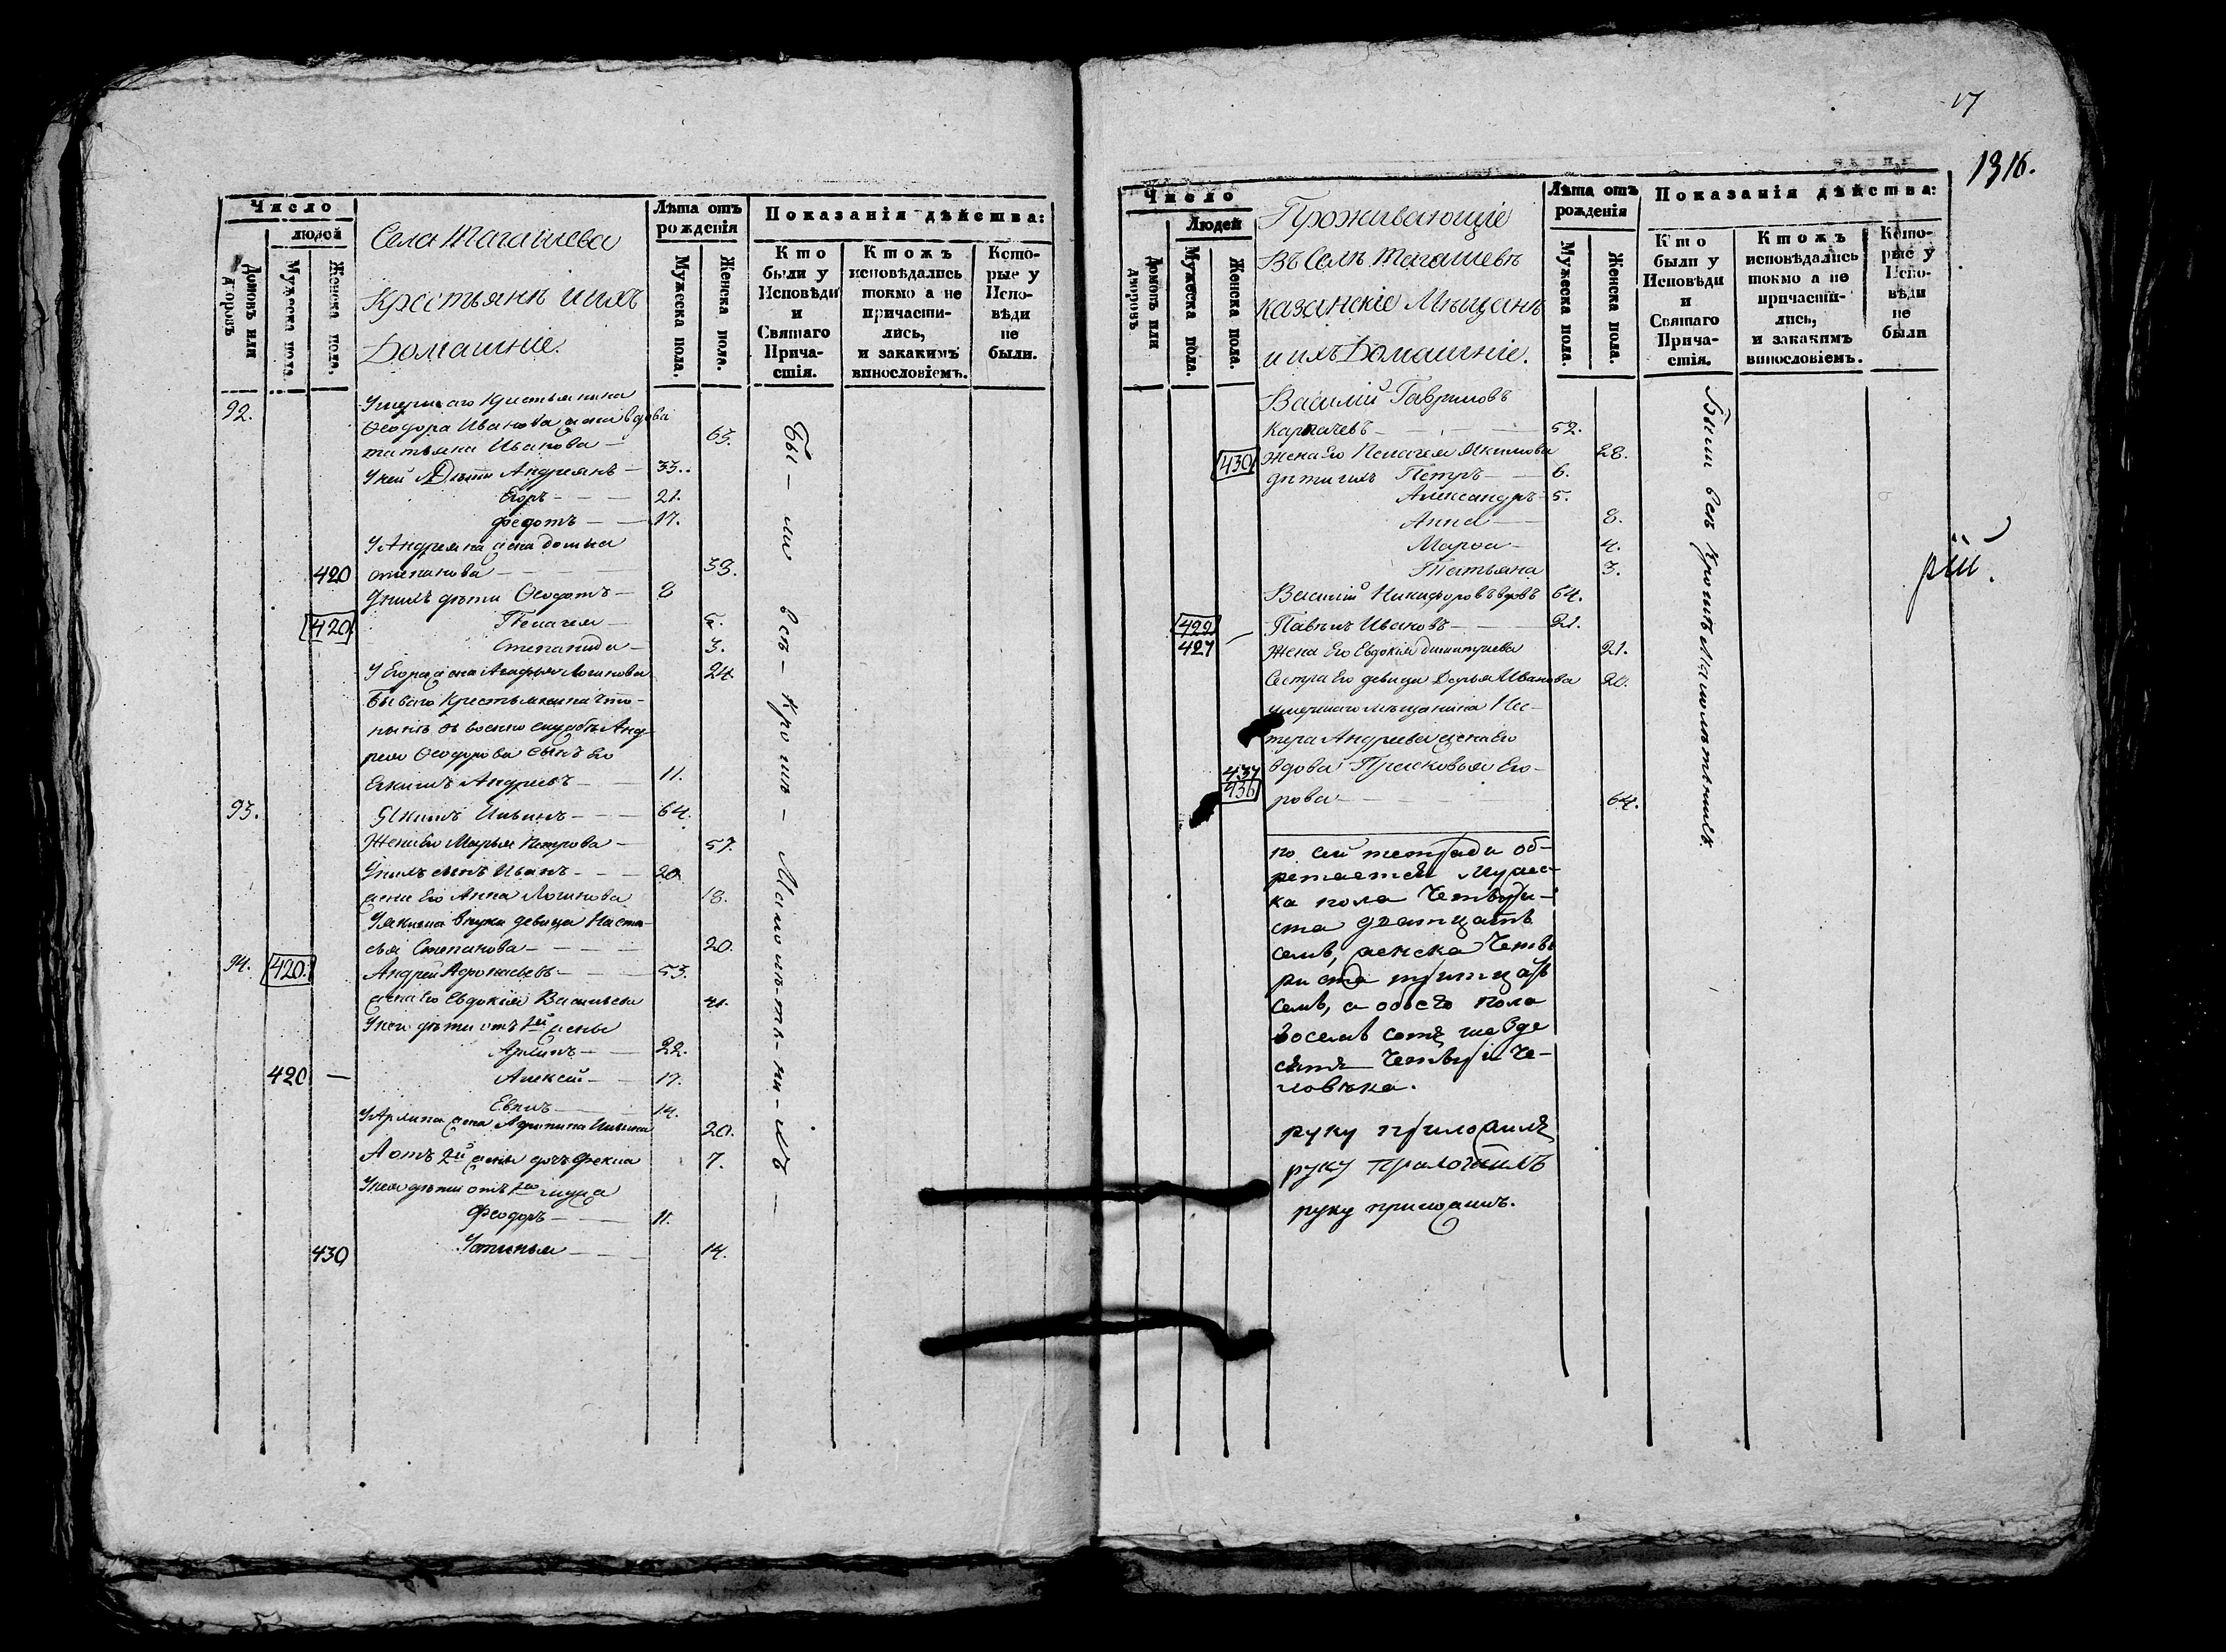 Число
людей
Домовъ или дворовъ
Мужеска пола.
Женска пола.
Села Тагашева
Крестьянѣ и ихъ
Домашніе.
Лѣта отъ рожденія
Мужеска пола.
Женска пола.
Показанія дѣйства:
Кто были у Исповѣди и Святаго Причастія.
Ктожъ исповѣдались токмо а не причастились, и закакимъ винословіемъ.
Которые у Исповѣди не были.
92. Умершаго крестьянина
Ѳеодора Иванова жена вдова
татьяна Иванова — 63.
У ней Дѣти Андреянъ — 33.
Егоръ — 21.
Федотъ — 17.
У Андреяна жена домна
420 степанова — 33.
У нихъ дѣти Ѳеодотъ — 8
420 Пелагея — 5.
Степанида — 3.
У Егора жена Агафья Логинова 24.
Бываго Крестьянина что
нынѣ въ воен службѣ Анд
рея Ѳеодорова сынъ Его
Екимъ Андреевъ — 11.
93. Якимъ Ильинъ — 64.
Жена Его Марья Петрова — 57.
У нихъ сынъ Иванъ — 20.
жена Его Анна Логинова 18.
У Якима внука девица Наста-
сья Степанова — 20.
94. 420. Андрей Афонасьевъ — 53.
жена Его Евдокия Васильева 41.
У него дѣти отъ 1й жены
22.
420 — Алексей — 17.
14.
жена Ильина 20.
А отъ 2й жены дочь Фекла 7.
У нея дѣти отъ 1го мужа
Феодоръ — 11.
430 Устинья — 14.
Бы — ли всѣ — Кро мѣ — Мало лѣ-тъ-ни-хъ —
17
1316.
Число
Людей
Домовъ или дворовъ
Мужеска пола.
Женска пола.
Проживающіе
Въ Селѣ Тагашевѣ
казанскіе Мѣщанѣ
и ихъ Домашніе.
Лѣта отъ рожденія
Мужеска пола.
Женска пола.
Показанія дѣйства:
Кто были у Исповѣди и Святаго Причастія.
Ктожъ исповѣдались токмо а не причастились, и закакимъ винословіемъ.
Которые у Исповѣди не были
Василій Гавриловъ
52.
430 Жена Его Пелагея Якимова 28.
дѣти ихъ Петръ — 6.
Александръ — 5.
Анна — 8.
Марѳа — 4.
Татьяна 3.
Василій Никифоровъ вдовъ 64.
422 Павелъ Ивановъ — 21.
427 — Жена Его Евдокия димитриева 21.
Сестра Его девица Дарья Иванова 20.
умершаго мѣщанина Пе-
тра Андреева жена Его
437 вдова Прасковья Его-
436 рова — 64.
Были всѣ Кромѣ Малолѣтнихъ.
рїи.
по сей тетради об-
ретается Мужес-
ка пола Четыри-
ста дватцать
семь, женска Четы
ри ста тритцать
семь, а обоего пола
восемь сотъ шезде
сятъ Четыри Че-
ловѣка.
руку приложилъ
руку Приложилъ
руку приложилъ.